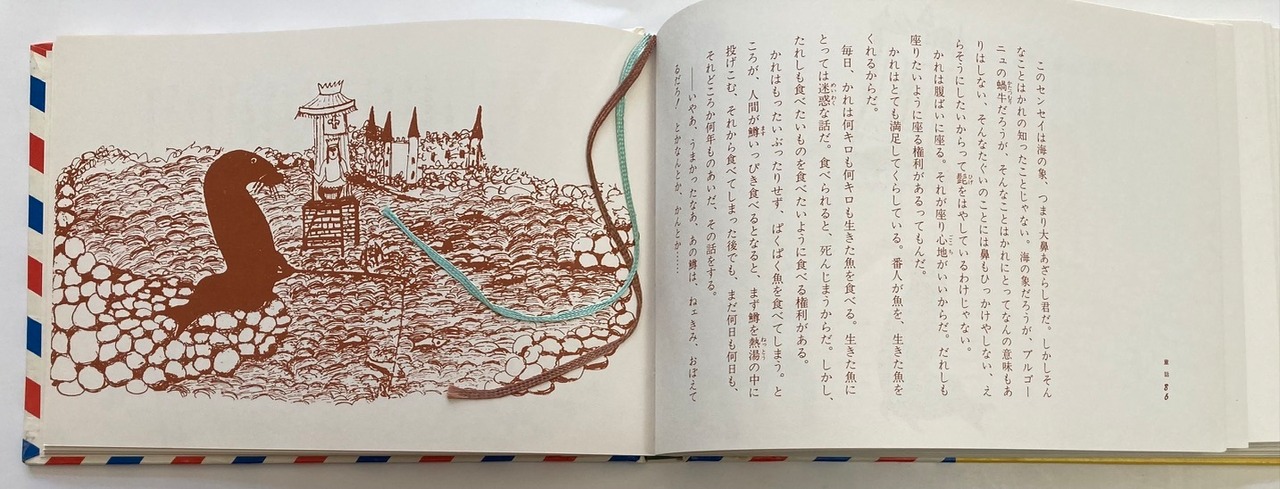 このセンセイは海の象、つまり大鼻あざらし君だ。しかしそん
なことはかれの知ったことじゃない。海の象だろうが、ブルゴー
ニュの蝸牛だろうが、そんなことはかれにとってなんの意味もあ
りはしない、そんなたぐいのことには鼻もひっかけやしない、え
らそうにしたいからって髭をはやしているわけじゃない。
かれは腹ばいに座る。それが座り心地がいいからだ。だれしも
座りたいように座る権利があるってもんだ。
かれはとても満足してくらしている。番人が魚を、生きた魚を
くれるからだ。
毎日、かれは何キロも何キロも生きた魚を食べる。生きた魚に
とっては迷惑な話だ。食べられると、死んじまうからだ。しかし、
たれしも食べたいものを食べたいように食べる権利がある。
かれはもったいぶったりせず、ぱくぱく魚を食べてしまう。と
ころが、人間が鱒いっぴき食べるとなると、まず鱒を熱湯の中に
投げこむ、それから食べてしまった後でも、まだ何日も何日も、
それどころか何年ものあいだ、その話をする。
――いやあ、うまかったなあ、あの鱒は、ねェきみ、おぼえて
るだろ! とかなんとか、かんとか……
童話 86